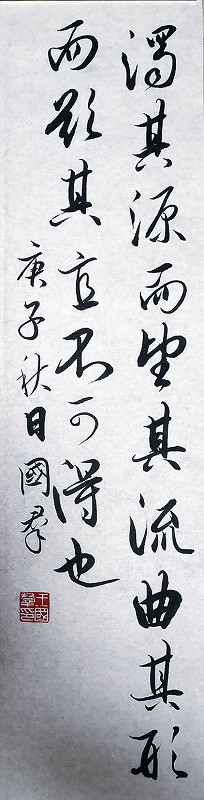 濁其源而望其流曲其形
而欲其直不可得也
庚子秋日國羣
王國
羣印